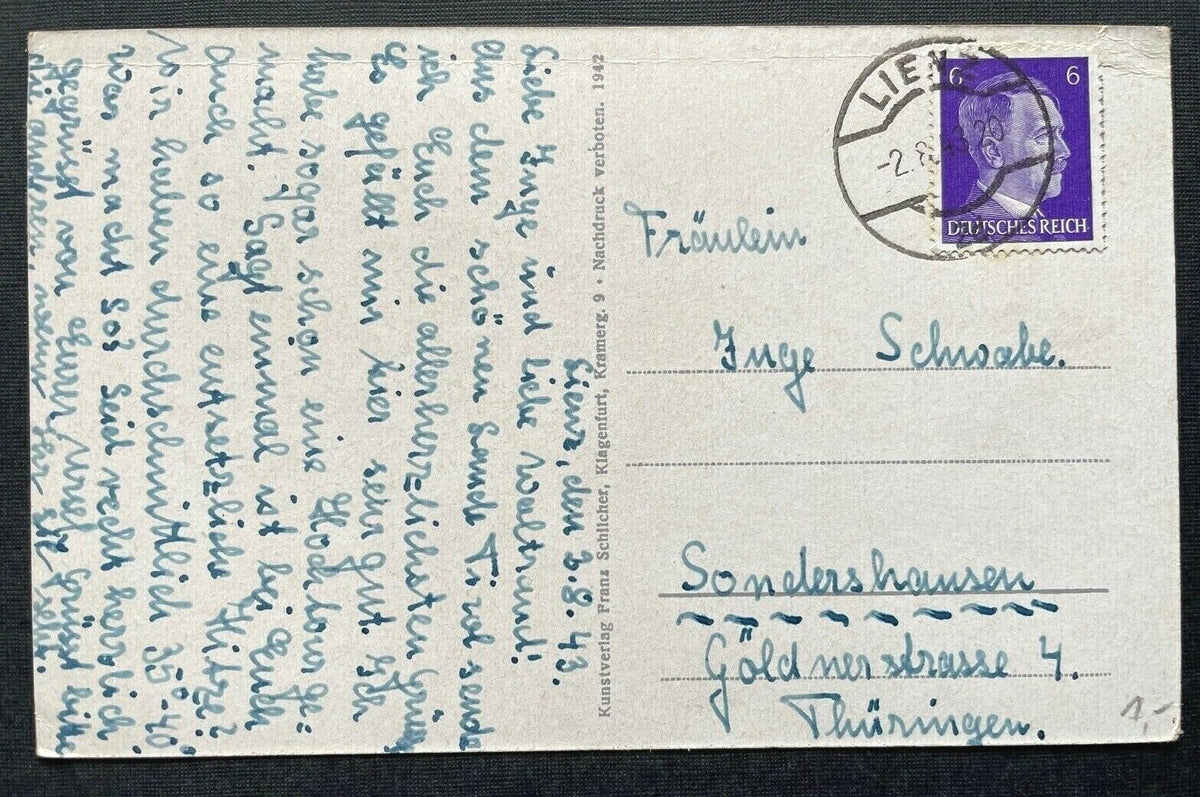 LIENZ
-2.8.43.20
6 6
DEUTSCHES REICH
Lienz, den 2.8.43.
Liebe Inge und liebe Waltraut!
Aus dem schönen Lande Tirol sende
ich Euch die allerherzlichsten Grüsse
Es gefällt mir hier sehr gut. Ich
habe sogar schon eine Hochtour ge-
macht. Sagt einmal ist bei Euch
auch so eine entsetzliche Hitze?
Wir haben durchschnittlich 35°-40°
Was macht Ihr? Seid recht herzlich
gegrüsst von Eurer Ursel. Grüsst bitte
die anderen, wenn Ihr sie seht.
Kunstverlag Franz Schilcher, Klagenfurt, Kramerg. 9 • Nachdruck verboten. 1942
Fräulein
Inge Schwabe.
Sondershausen
Göldnerstrasse 4.
Thüringen.
1,-